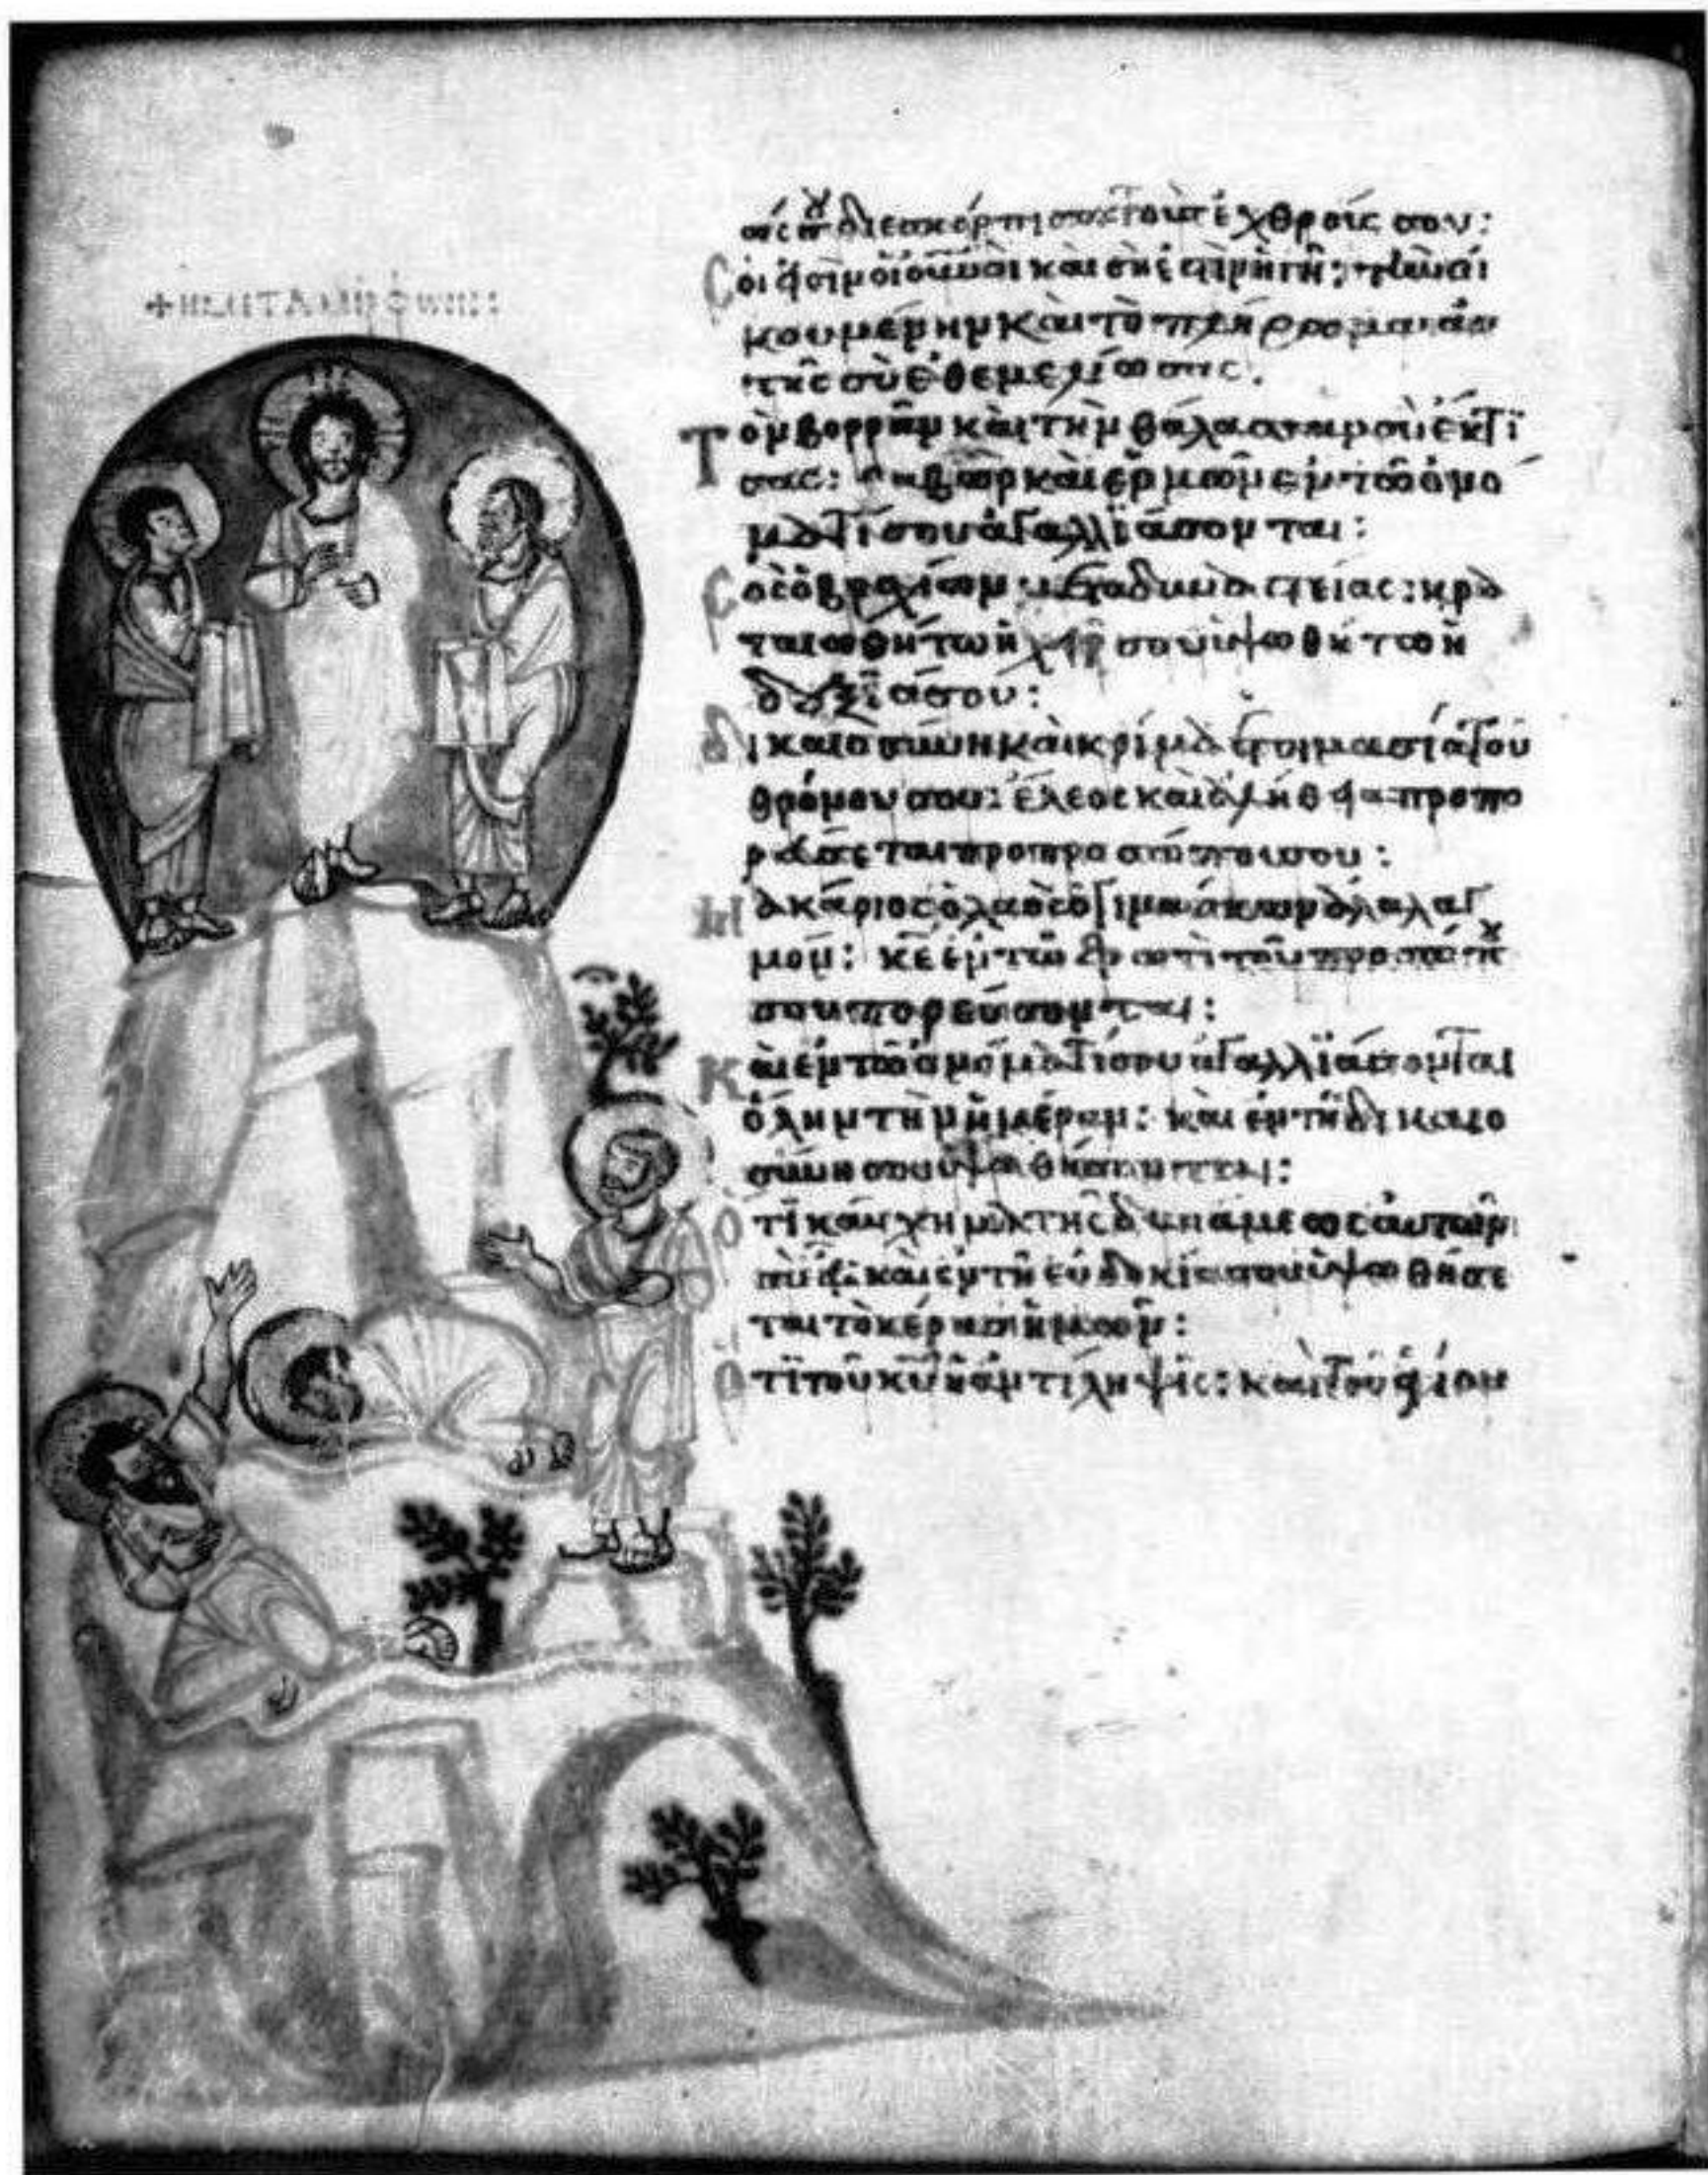 + Η ΜΕΤΑΜΟΡΦΩCΙC:
διεσκόρπισας τοὺς ἐχθρούς σου:
Cοί εἰσιν οἱ οὐνοὶ καὶ σή ἐστιν ἡ γῆ: τὴν οἰ
κουμένην καὶ τὸ πλήρωμα αὐ
τῆς σὺ ἐθεμελίωσας.
Τὸν βορρᾶν καὶ τὴν θάλασσαν σὺ ἔκτι
σας: θαβὼρ καὶ ἑρμὼν ἐν τῶ ὀνό
ματί σου ἀγαλλιάσονται:
Cὸς ὁ βραχίων μετὰ δυναστείας: κρα
ταιωθήτω ἡ χείρ σου ὑψωθήτω ἡ
δεξιά σου:
Δικαιοσύνη καὶ κρίμα ἑτοιμασία τοῦ
θρόνου σου: ἔλεος καὶ ἀλήθεια προπο
ρεύσεται πρὸ προσώπου σου:
Μακάριος ὁ λαὸς ὁ γινώσκων ἀλαλαγ
μόν: κε ἐν τῶ φωτὶ τοῦ προσώπου
σου πορεύσονται:
Καὶ ἐν τῶ ὀνόματί σου ἀγαλλιάσονται
ὅλην τὴν ἡμέραν: καὶ ἐν τῆ δικαιο
σύνη σου ὑψωθήσονται:
Ὅτι καύχημα τῆς δυνάμεως αὐτῶν
σὺ εἶ: καὶ ἐν τῆ εὐδοκία σου ὑψωθήσε
ται τὸ κέρας ἡμῶν:
Ὅτι τοῦ κυ ἡ ἀντίληψις: καὶ τοῦ ἁγίου